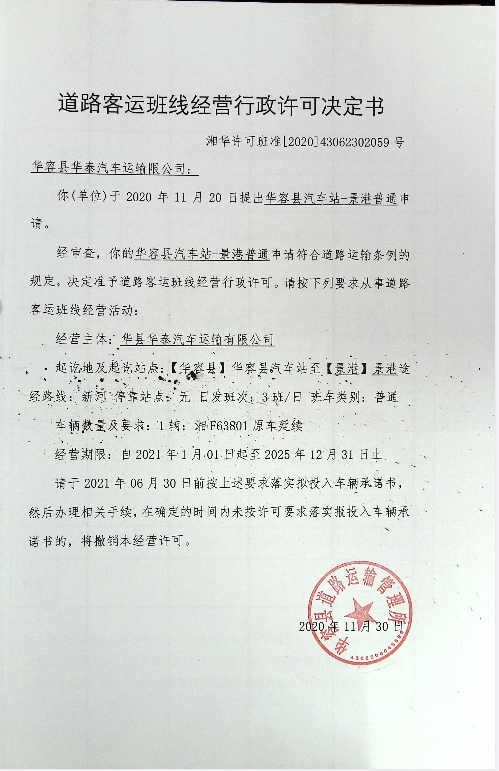 道路客运班线经营行政许可决定书
湘华许可班准[2020]43062302059 号
华容县华泰汽车运输限公司：
你(单位)于 2020 年 11 月 20 日提出华容县汽车站-景港普通申
请。
经审查，你的华容县汽车站-景港普通申请符合道路运输条例的
规定，决定准予道路客运班线经营行政许可。请按下列要求从事道路
客运班线经营活动：
经营主体：华县华泰汽车运输有限公司
起讫地及起讫站点：【华容县】华容县汽车站至【景港】景港途
经路线：新河 停靠站点：无 日发班次：3 班/日 班车类别：普通
车辆数量及要求：1 辆；湘F63801 原车延续
经营期限：自 2021 年 1 月 01 日起至 2025 年 12 月 31 日止
请于 2021 年 06 月 30 日前按上述要求落实拟投入车辆承诺书，
然后办理相关手续，在确定的时间内未按许可要求落实报投入车辆承
诺书的，将撤销本经营许可。
华容县道路运输管理所
2020 年 11 月 30 日